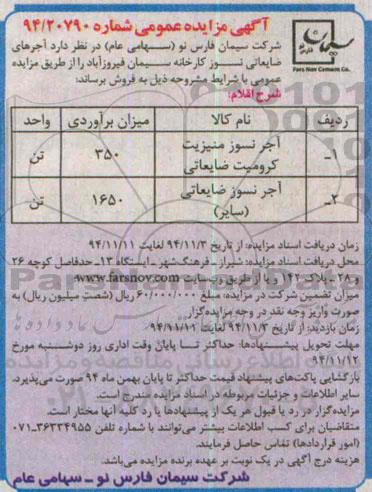 آگهی مزایده عمومی شماره ۹۴/۲۰۷۹۰
شرکت سیمان فارس نو (سهامی عام) در نظر دارد آجرهای
ضایعاتی نسوز کارخانه سیمان فیروزآباد را از طریق مزایده
عمومی با شرایط مشروحه ذیل به فروش برساند:
Fars Nov Cement Co.
شرح اقلام:
ردیف نام کالا میزان برآوردی واحد
۱ـ آجر نسوز منیزیت کرومیت ضایعاتی ۳۵۰ تن
۲ـ آجر نسوز ضایعاتی (سایر) ۱۶۵۰ تن
زمان دریافت اسناد مزایده: از تاریخ ۹۴/۱۱/۳ لغایت ۹۴/۱۱/۱۱
محل دریافت اسناد مزایده: شیراز ـ فرهنگ‌شهر ـ ایستگاه ۱۳ـ حدفاصل کوچه ۲۶
و ۲۸ ـ پلاک ۱۴۲ و یا از طریق وب‌سایت www.farsnov.com
میزان تضمین شرکت در مزایده: مبلغ ۶۰/۰۰۰/۰۰۰ ریال (شصت میلیون ریال) به
صورت واریز وجه نقد در وجه مزایده‌گزار
زمان بازدید: از تاریخ ۹۴/۱۱/۳ لغایت ۹۴/۱۱/۱۱
مهلت تحویل پیشنهادها: حداکثر تا پایان وقت اداری روز دوشنبه مورخ
۹۴/۱۱/۱۲
بازگشایی پاکت‌های پیشنهاد قیمت حداکثر تا پایان بهمن ماه ۹۴ صورت می‌پذیرد.
سایر اطلاعات و جزئیات مربوطه در اسناد مزایده مندرج است.
مزایده‌گزار در رد یا قبول هر یک از پیشنهادها یا رد کلیه آنها مختار است.
متقاضیان برای کسب اطلاعات بیشتر می‌توانند با شماره تلفن ۳۶۳۳۴۹۵۵-۰۷۱
(امور قراردادها) تماس حاصل فرمایند.
هزینه درج آگهی در یک نوبت بر عهده برنده مزایده می‌باشد.
شرکت سیمان فارس نو ـ سهامی عام